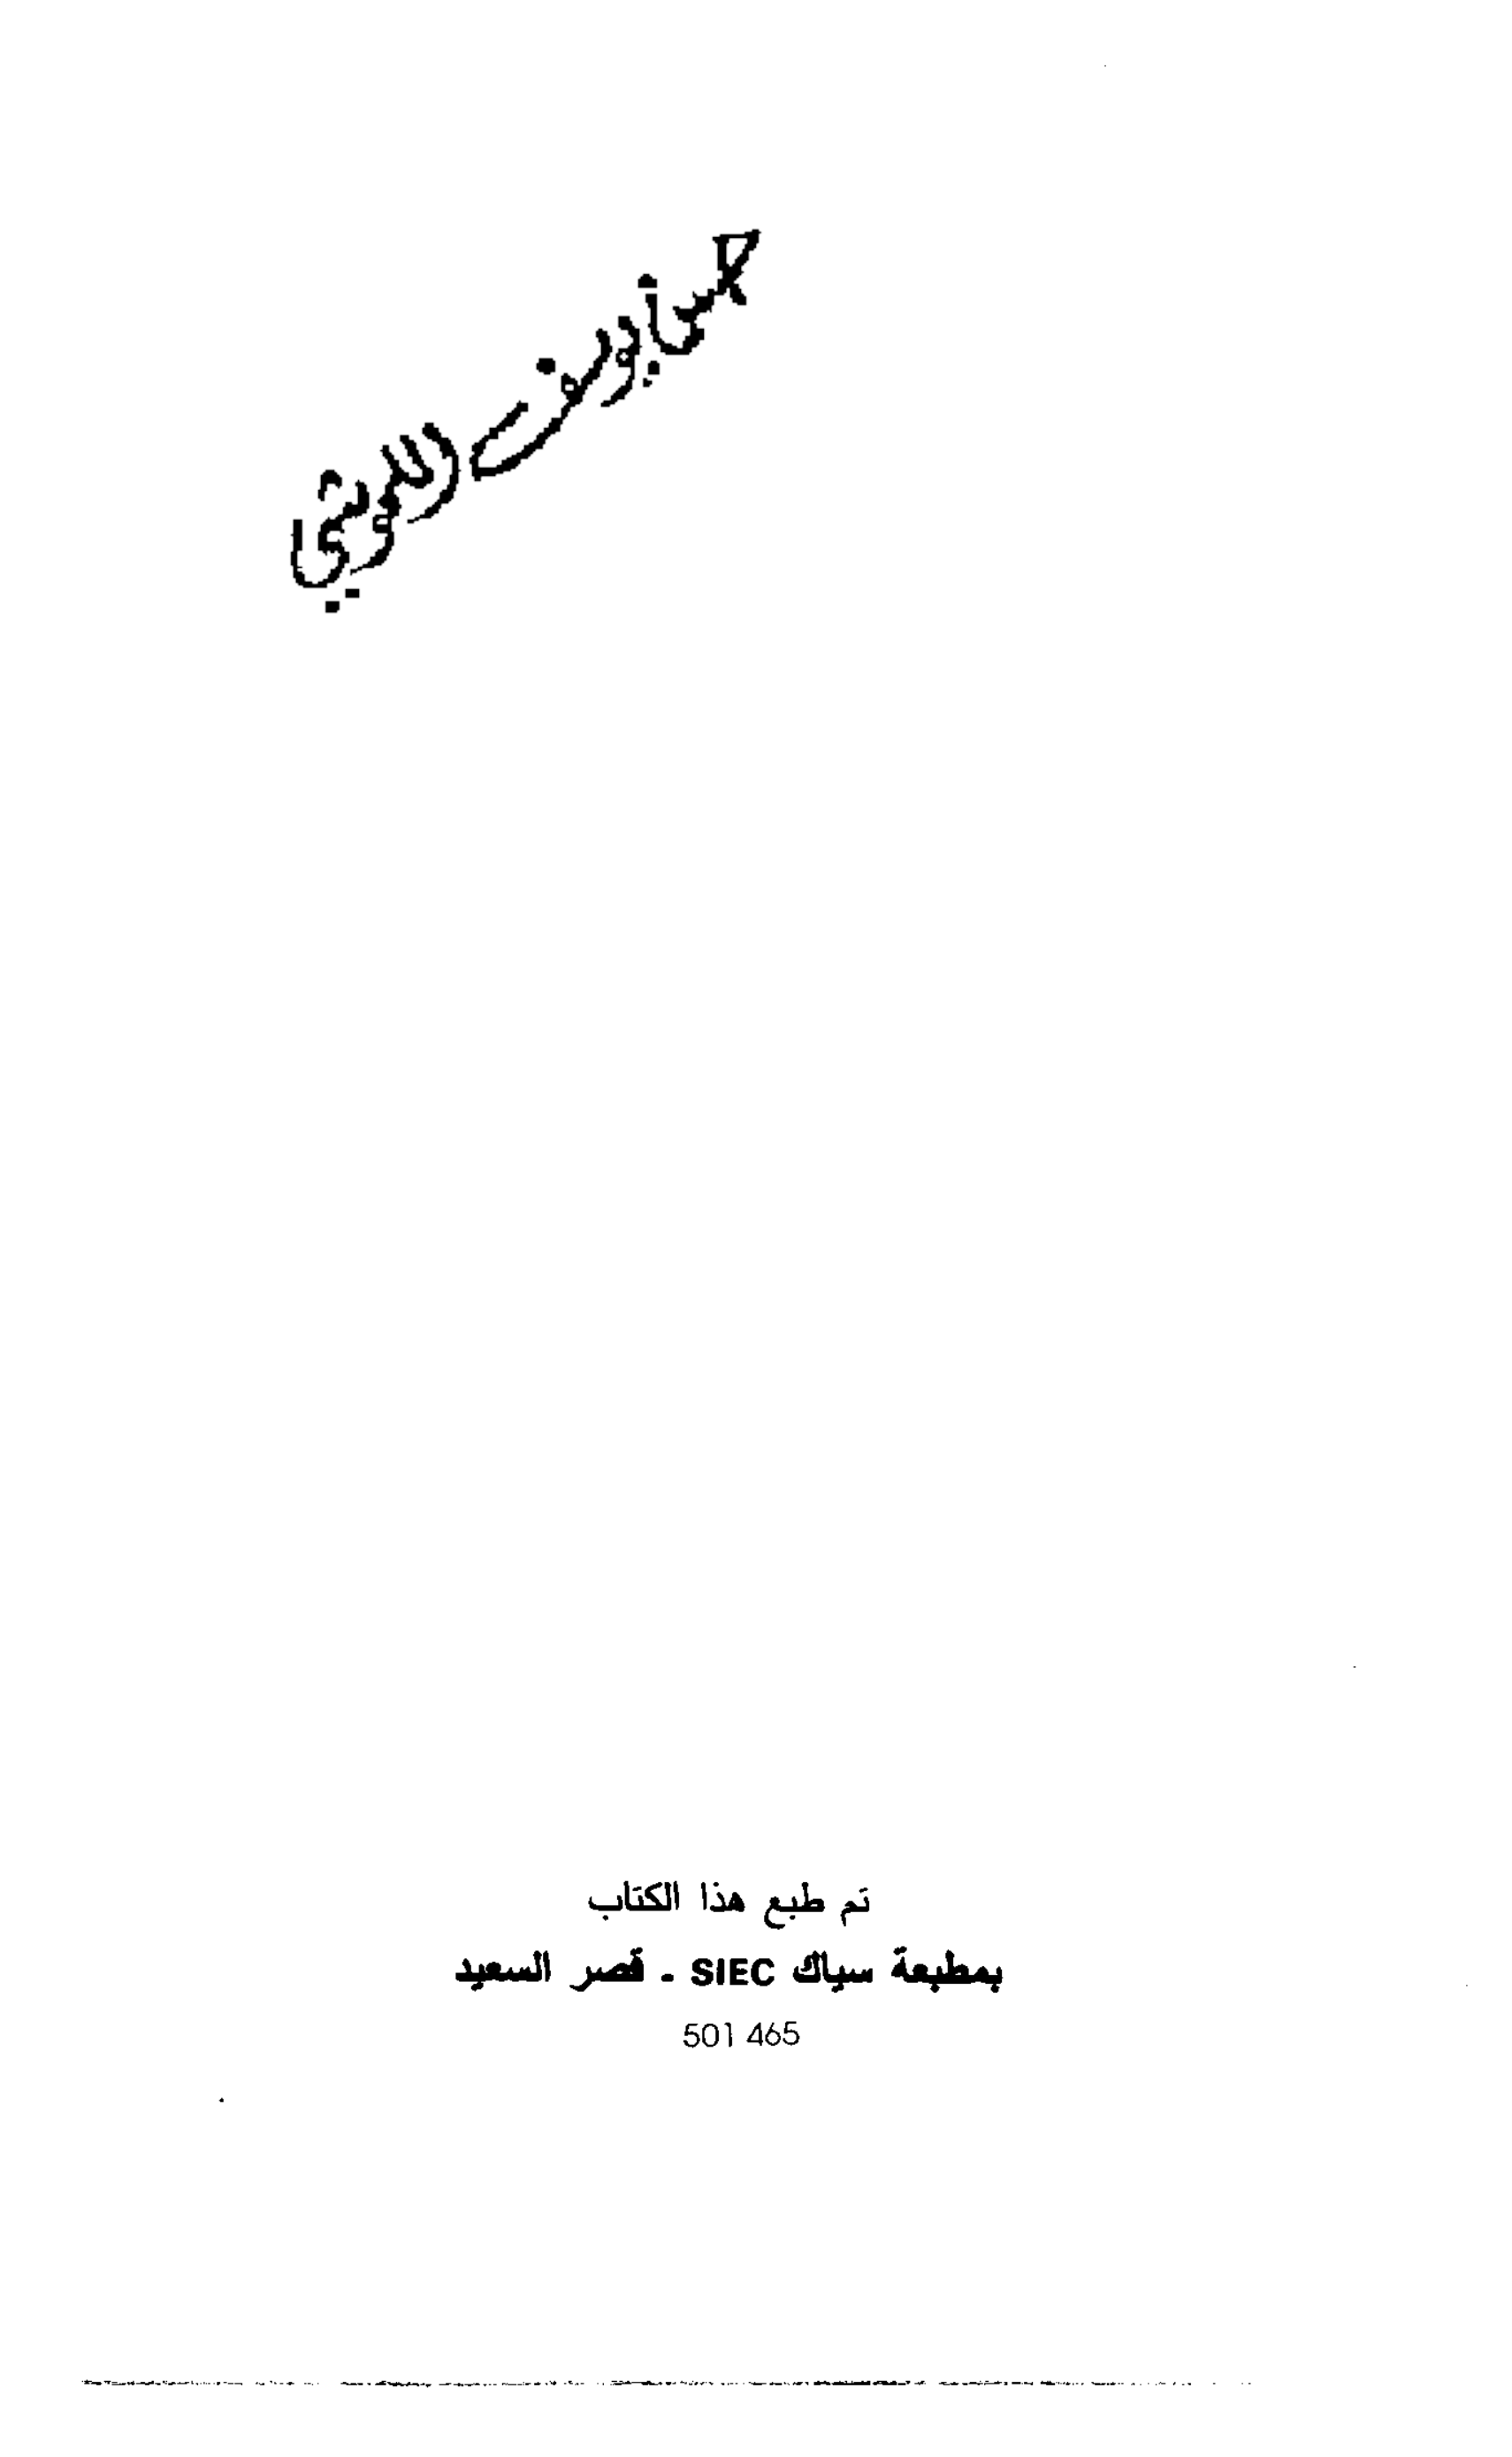 تم طبع هذا الكتاب
بمطبعة سياك SIEC - قصر السعيد
501 465